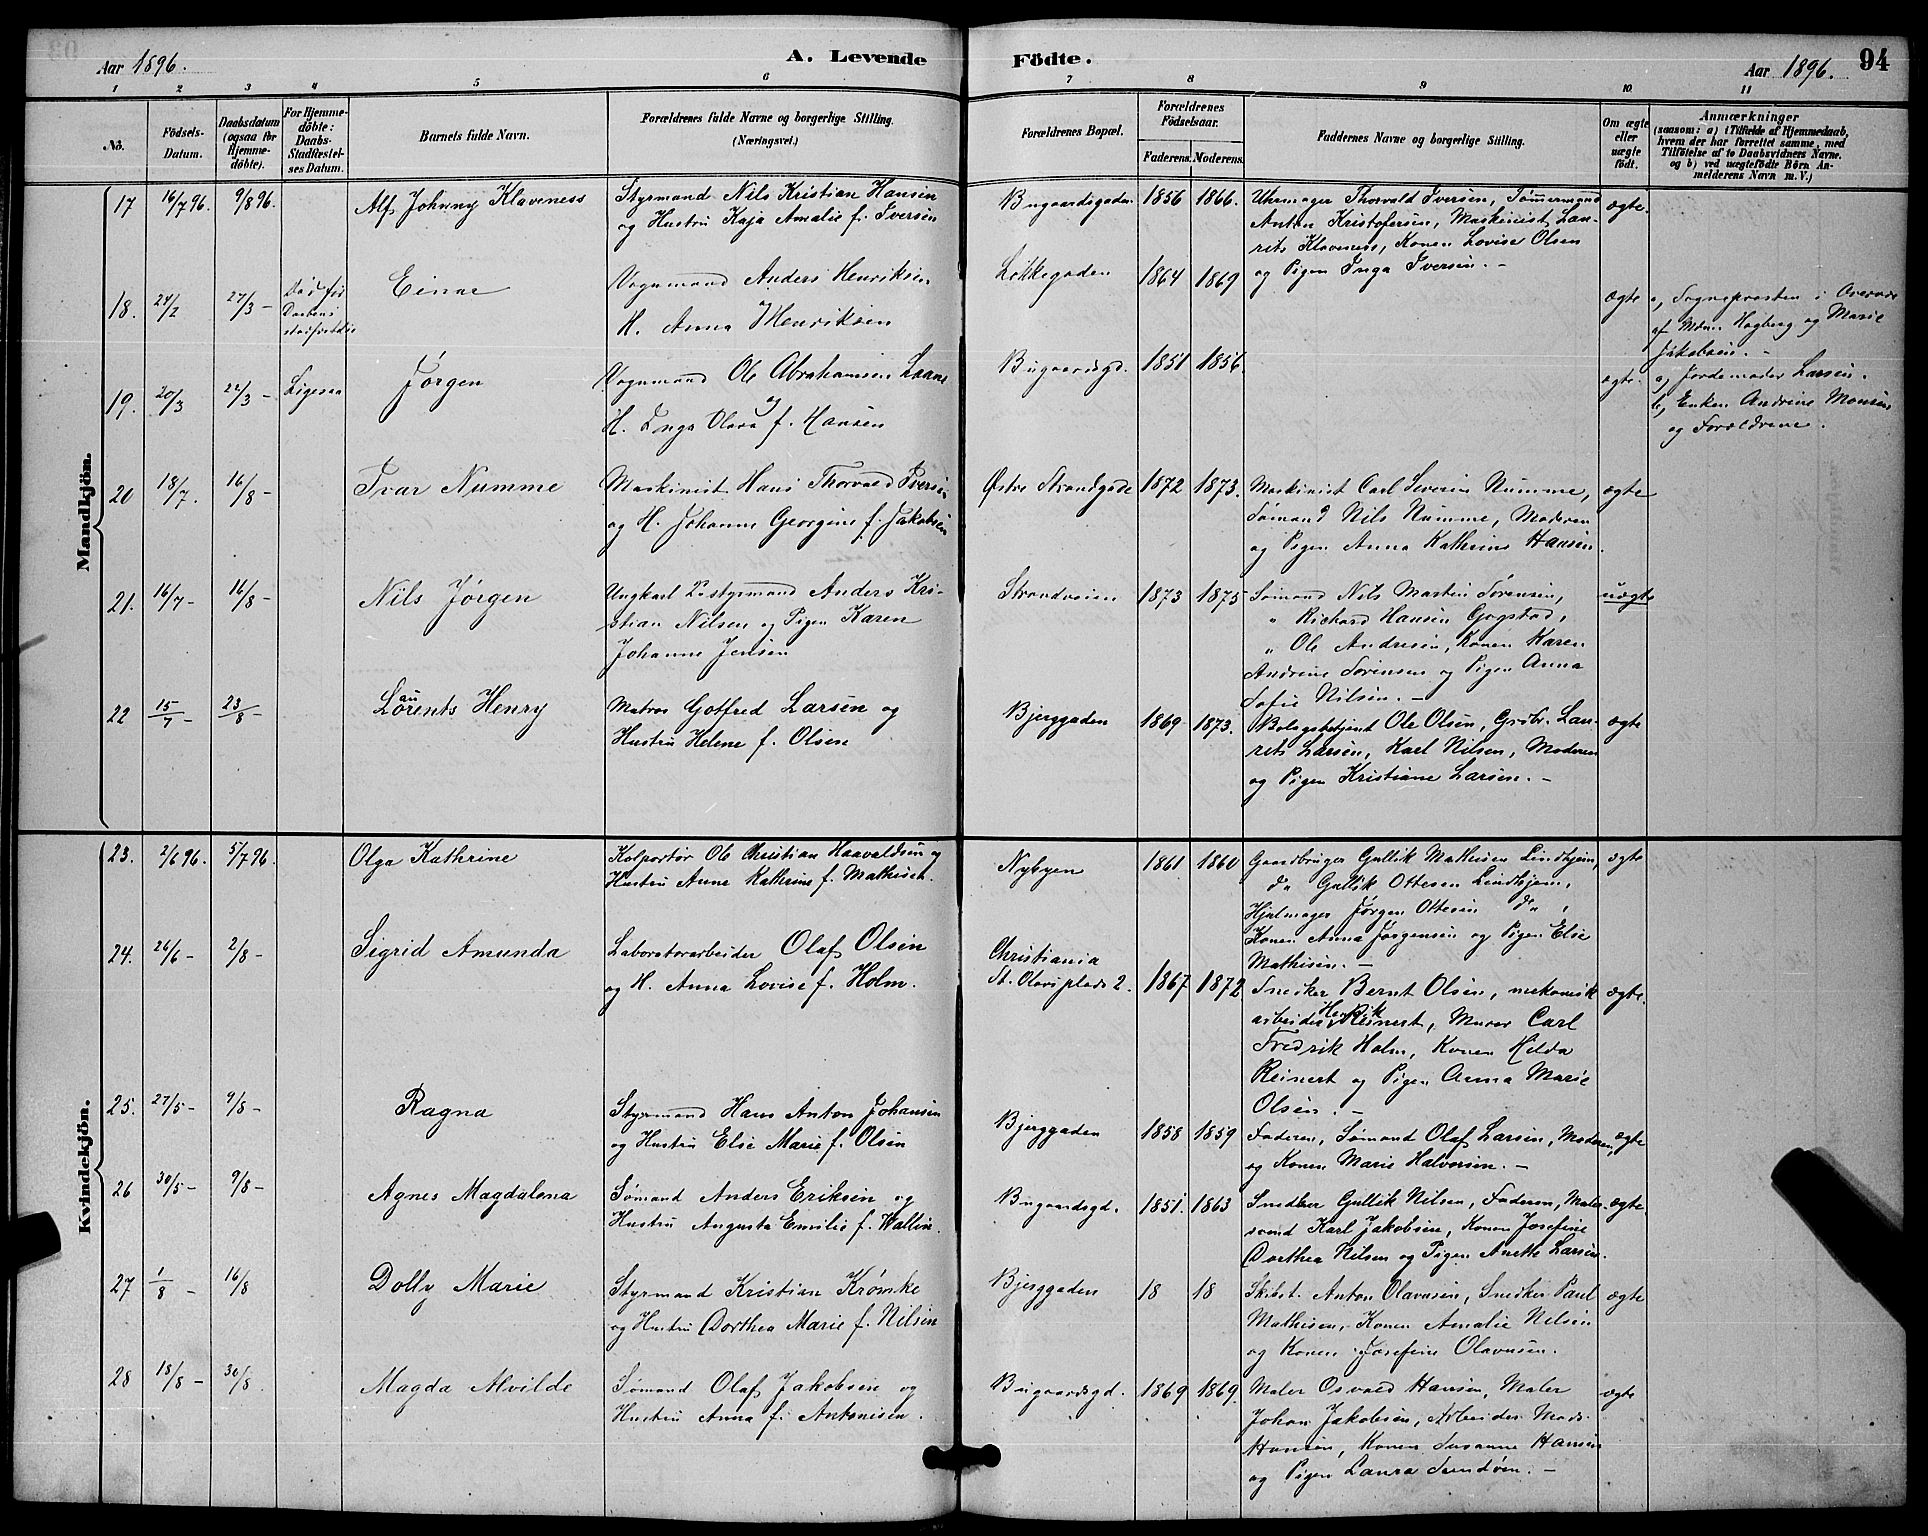 Aar 1896.
A. Levende
Födte.
Aar 1896.
94
1 2 3 4 5 6 7 8 9 10 11
No.
Födsels-
Datum.
Daabsdatum
(ogsaa for
Hjemme-
döbte).
For Hjemme-
döbte:
Daabs-
Stadfæstel-
ses Datum.
Barnets fulde Navn.
Forældrenes fulde Navne og borgerlige Stilling.
(Næringsvei.)
Forældrenes Bopæl.
Forældrenes
Födselsaar.
Faderens. Moderens.
Faddernes Navne og borgerlige Stilling.
Om ægte
eller
uægte
födt.
Anmærkninger
(saasom: a) i Tilfælde af Hjemmedaab,
hvem der har forrettet samme, med
Tilföielse af to Daabsvidners Navne.
og b) ved uægtefödte Börn An-
melderens Navn m. V.)
Mandkjön.
17 16/7 96. 9/8 96. Alf Johnny Klaveness
Styrmand Nils Kristian Hansen
og Hustru Kaja Amalie f. Iversen
Bugaardsgaden 1856 1866.
Uhrmager Thorvald Iversen, Tømmermand
Anton Kristofersen, Maskinist Lau-
rits Klaveness, Konen Lovise Olsen
og Pigen Inga Iversen. –
ægte.
18. 24/2 27/3 –
Død før
Daabens
stadfæstelse
Einar
Vognmand Anders Henriksen
H. Anna Henriksen
Løkkegaden 1864 1869
ægte
a, Sognepresten i
af Hogberg og Marie
Jakobsen. –
19. 20/3 22/3 – Ligesaa Jørgen
Vognmand Ole Abrahamsen Laane
og
H. Inga Olava f. Hansen
Bugaardsgd. 1851 1856.
ægte.
a, Jordemoder Larsen.
b, Enken Andrine Monsen
og Forældrene.
20 18/7. 16/8 – Ivar Numme
Maskinist Hans Thorvald Iversen
og H. Johanne Georgine f. Jakobsen
Østre Strandgade 1872 1873.
Maskinist Carl Severin Numme,
Sømand Nils Numme, Moderen
og Pigen Anna Kathrine Hansen.
ægte
21. 16/7 – 16/8 – Nils Jørgen
Ungkarl Løstyrmand Anders Kri-
stian Nilsen og Pigen Karen
Johanne Jensen
Strandveien 1873 1875
Sømand Nils Martin Sørensen,
" Richard Hansen Gogstad,
" Ole Andresen, Konen Karen
Andrine Sørensen og Pigen Anna
Sofie Nilsen. –
uægte
22 15/7 – 23/8 –
au
Lorents Henry
Matros Gotfred Larsen og
Hustru Helene f. Olsen
Bjerggaden 1869 1873.
Bolagsbetjent Ole Olsen, Gröbr. Lau-
rits Larsen, Karl Nilsen, Moderen
og Pigen Kristiane Larsen. –
ægte
Kvindekjön.
23. 2/6 96. 5/7 96. Olga Kathrine
Kolportør Ole Christian Haavaldsen og
Hustru Anne Kathrine f. Mathisen.
Nybyen 1861 1860
Gaardbruger Gullik Mathisen Lindhjem,
do Gullik Ottesen Lindhjem,
Hjulmager Jørgen Ottesen do,
Konen Anna Jørgensen og Pigen Elise
Mathisen. –
ægte
24. 26/6 – 2/8 – Sigrid Amunda
Laboratorarbeider Olaf Olsen
og H. Anna Lovise f. Holm.
Christiania
St. Olavsplads 2. 1867 1872
Snedker Bernt Olsen, mekanisk
Henrik
arbeider Reinert, Murer Carl
Fredrik Holm, Konen Hilda
Reinert og Pigen Anna Marie
Olsen. –
ægte.
25. 27/5 – 9/8 – Ragna
Styrmand Hans Anton Johansen
og Hustru Else Marie f. Olsen
Bjerggaden 1858 1859
Faderen, Sømand Olaf Larsen, Moderen,
og Konen Marie Halvorsen. –
ægte
26 30/5 – 9/8 – Agnes Magdalena
Sømand Anders Eriksen og
Hustru Augusta Emilie f. Wallin.
Bugaardsgd. 1851 1863
Snedker Gullik Nilsen, Faderen, Maler-
svend Karl Jakobsen, Konen Josefine
Dorthea Nilsen og Pigen Anette Larsen.
ægte.
27 1/8 – 16/8 Dolly Marie
Styrmand Kristian Krømke
og Hustru Dorthea Marie f. Nilsen
Bjerggaden 18 18
Skibst. Anton Olavesen, Snedker Paul
Mathisen, Konen Amalie Nilsen
og Konen Josefine Olavesen.
ægte
28 18/8 – 30/8. Magda Alvilde
Sømand Olaf Jakobsen og
Hustru Anna f. Antonisen.
Bugaardsgd. 1869 1869.
Maler Osvald Hansen, Maler
Johan Jakobsen, Arbeider Mads
Hansen, Konen Susanne Hansen
og Pigen Laura Sundøen. –
ægte